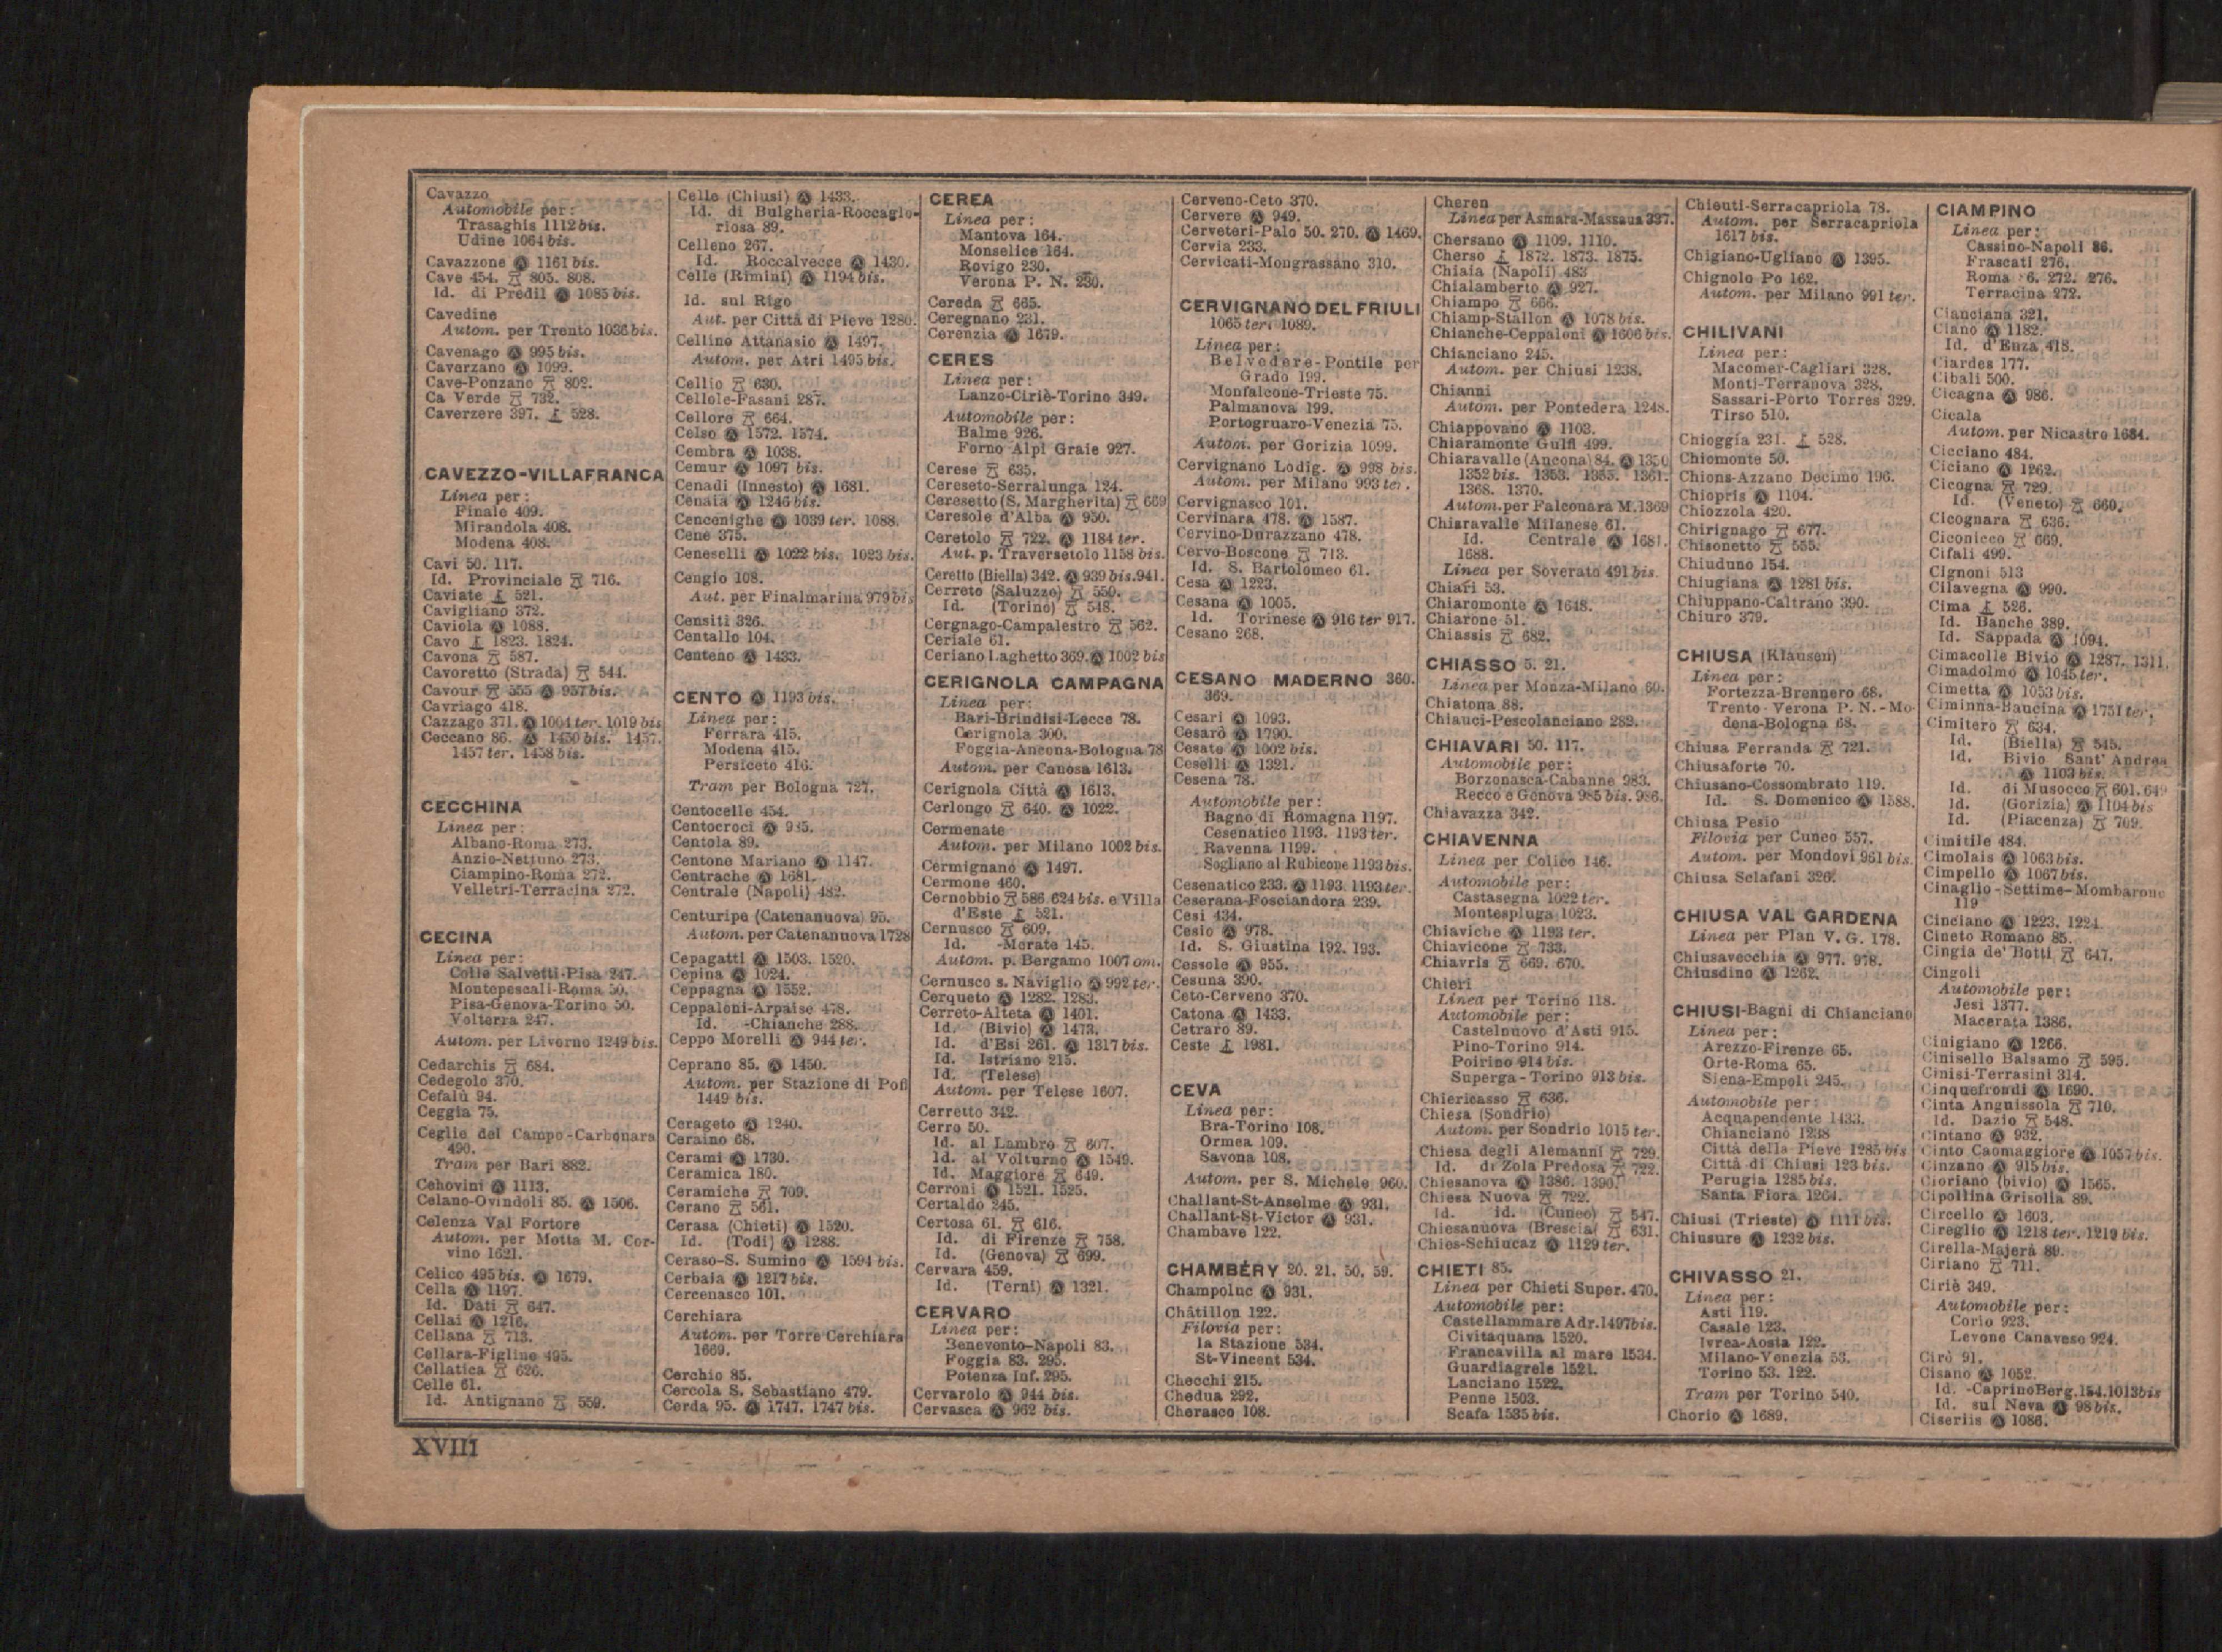 Cavazzo
Automobile per:
Trasaghis 1112 bis.
Udine 1064 bis.
Cavazzone Ⓐ 1161 bis.
Cave 454. 805. 808.
Id. di Predil Ⓐ 1085 bis.
Cavedine
Autom. per Trento 1036 bis.
Cavenago Ⓐ 995 bis.
Caverzano Ⓐ 1099.
Cave-Ponzano 802.
Ca Verde 732.
Caverzere 397. 528.
CAVEZZO-VILLAFRANCA
Linea per:
Finale 409.
Mirandola 408.
Modena 408.
Cavi 50. 117.
Id. Provinciale 716.
Caviate 521.
Cavigliano 372.
Caviola Ⓐ 1088.
Cavo 1823. 1824.
Cavona 587.
Cavoretto (Strada) 544.
Cavour 555 Ⓐ 957 bis.
Cavriago 418.
Cazzago 371. Ⓐ 1004 ter. 1019 bis
Ceccano 86. Ⓐ 1450 bis. 1457.
1457 ter. 1458 bis.
CECCHINA
Linea per:
Albano-Roma 273.
Anzio-Nettuno 273.
Ciampino-Roma 272.
Velletri-Terracina 272.
CECINA
Linea per:
Colle Salvetti-Pisa 247.
Montepescali-Roma 50.
Pisa-Genova-Torino 50.
Volterra 247.
Autom. per Livorno 1249 bis.
Cedarchis 684.
Cedegolo 370.
Cefalù 94.
Ceggia 75.
Ceglie del Campo-Carbonara
490.
Tram per Bari 882.
Cehovini Ⓐ 1113.
Celano-Ovindoli 85. Ⓐ 1506.
Celenza Val Fortore
Autom. per Motta M. Cor-
vino 1621.
Celico 495 bis. Ⓐ 1679.
Cella Ⓐ 1197.
Id. Dati 647.
Cellai Ⓐ 1216.
Cellana 713.
Cellara-Figline 495.
Cellatica 626.
Celle 61.
Id. Antignano 559.
Celle (Chiusi) Ⓐ 1433.
Id. di Bulgheria-Roccaglo-
riosa 89.
Celleno 267.
Id. Roccalvecce Ⓐ 1430.
Celle (Rimini) Ⓐ 1194 bis.
Id. sul Rigo
Aut. per Città di Pieve 1280.
Cellino Attanasio Ⓐ 1497.
Autom. per Atri 1495 bis.
Cellio 630.
Cellole-Fasani 287.
Cellore 664.
Celso Ⓐ 1572. 1574.
Cembra Ⓐ 1038.
Cemur Ⓐ 1097 bis.
Cenadi (Innesto) Ⓐ 1681.
Cenaia Ⓐ 1246 bis.
Cencenighe Ⓐ 1039 ter. 1088.
Cene 375.
Ceneselli Ⓐ 1022 bis. 1023 bis.
Cengio 108.
Aut. per Finalmarina 979 bis
Censiti 326.
Centallo 104.
Centeno Ⓐ 1433.
CENTO Ⓐ 1193 bis.
Linea per:
Ferrara 415.
Modena 415.
Persiceto 416.
Tram per Bologna 727.
Centocelle 454.
Centocroci Ⓐ 985.
Centola 89.
Centone Mariano Ⓐ 1147.
Centrache Ⓐ 1681.
Centrale (Napoli) 482.
Centuripe (Catenanuova) 95.
Autom. per Catenanuova 1728
Cepagatti Ⓐ 1503. 1520.
Cepina Ⓐ 1024.
Ceppagna Ⓐ 1552.
Ceppaloni-Arpaise 478.
Id. -Chianche 288.
Ceppo Morelli Ⓐ 944 ter.
Ceprano 85. Ⓐ 1450.
Autom. per Stazione di Pofi
1449 bis.
Cerageto Ⓐ 1240.
Ceraino 68.
Cerami Ⓐ 1730.
Ceramica 180.
Ceramiche 709.
Cerano 561.
Cerasa (Chieti) Ⓐ 1520.
Id. (Todi) Ⓐ 1288.
Ceraso-S. Sumino Ⓐ 1594 bis.
Cerbaia Ⓐ 1217 bis.
Cercenasco 101.
Cerchiara
Autom. per Torre Cerchiara
1669.
Cerchio 85.
Cercola S. Sebastiano 479.
Cerda 95. Ⓐ 1747. 1747 bis.
CEREA
Linea per:
Mantova 164.
Monselice 164.
Rovigo 230.
Verona P. N. 230.
Cereda 665.
Ceregnano 231.
Cerenzia Ⓐ 1679.
CERES
Linea per:
Lanzo-Ciriè-Torino 349.
Automobile per:
Balme 926.
Forno Alpi Graie 927.
Cerese 635.
Cereseto-Serralunga 124.
Ceresetto (S. Margherita) 669
Ceresole d'Alba Ⓐ 950.
Ceretolo 722. Ⓐ 1184 ter.
Aut. p. Traversetolo 1158 bis.
Ceretto (Biella) 342. Ⓐ 939 bis. 941.
Cerreto (Saluzzo) 550.
Id. (Torino) 548.
Cergnago-Campalestro 562.
Ceriale 61.
Ceriano Laghetto 369. Ⓐ 1002 bis
CERIGNOLA CAMPAGNA
Linea per:
Bari-Brindisi-Lecce 78.
Cerignola 300.
Foggia-Ancona-Bologna 78
Autom. per Canosa 1613.
Cerignola Città Ⓐ 1613.
Cerlongo 640. Ⓐ 1022.
Cermenate
Autom. per Milano 1002 bis.
Cermignano Ⓐ 1497.
Cermone 460.
Cernobbio 586. 624 bis. e Villa
d'Este 521.
Cernusco 609.
Id. -Merate 145.
Autom. p. Bergamo 1007 om.
Cernusco s. Naviglio Ⓐ 992 ter.
Cerqueto Ⓐ 1282. 1283.
Cerreto-Alteta Ⓐ 1401.
Id. (Bivio) Ⓐ 1473.
Id. d'Esi 261. Ⓐ 1317 bis.
Id. Istriano 215.
Id. (Telese)
Autom. per Telese 1607.
Cerretto 342.
Cerro 50.
Id. al Lambro 607.
Id. al Volturno Ⓐ 1549.
Id. Maggiore 649.
Cerroni Ⓐ 1521. 1525.
Certaldo 245.
Certosa 61. 616.
Id. di Firenze 758.
Id. (Genova) 699.
Cervara 459.
Id. (Terni) Ⓐ 1321.
CERVARO
Linea per:
Benevento-Napoli 83.
Foggia 83. 295.
Potenza Inf. 295.
Cervarolo Ⓐ 944 bis.
Cervasca Ⓐ 962 bis.
Cerveno-Ceto 370.
Cervere Ⓐ 949.
Cerveteri-Palo 50. 270. Ⓐ 1469.
Cervia 233.
Cervicati-Mongrassano 310.
CERVIGNANO DEL FRIULI
1065 ter. 1089.
Linea per:
Belvedere-Pontile per
Grado 199.
Monfalcone-Trieste 75.
Palmanova 199.
Portogruaro-Venezia 75.
Autom. per Gorizia 1099.
Cervignano Lodig. Ⓐ 998 bis.
Autom. per Milano 993 ter.
Cervignasco 101.
Cervinara 478. Ⓐ 1587.
Cervino-Durazzano 478.
Cervo-Boscone 713.
Id. S. Bartolomeo 61.
Cesa Ⓐ 1223.
Cesana Ⓐ 1005.
Id. Torinese Ⓐ 916 ter 917.
Cesano 268.
CESANO MADERNO 360.
369.
Cesari Ⓐ 1093.
Cesarò Ⓐ 1790.
Cesate Ⓐ 1002 bis.
Ceselli Ⓐ 1321.
Cesena 78.
Automobile per:
Bagno di Romagna 1197.
Cesenatico 1193. 1193 ter.
Ravenna 1199.
Sogliano al Rubicone 1193 bis.
Cesenatico 233. Ⓐ 1193. 1193 ter.
Ceserana-Fosciandora 239.
Cesi 434.
Cesio Ⓐ 978.
Id. S. Giustina 192. 193.
Cessole Ⓐ 955.
Cesuna 390.
Ceto-Cerveno 370.
Catona Ⓐ 1433.
Cetraro 89.
Ceste 1981.
CEVA
Linea per:
Bra-Torino 108.
Ormea 109.
Savona 108.
Autom. per S. Michele 960.
Challant-St-Anselme Ⓐ 931.
Challant-St-Victor Ⓐ 931.
Chambave 122.
CHAMBÉRY 20. 21. 50. 59.
Champoluc Ⓐ 931.
Châtillon 122.
Filovia per:
la Stazione 534.
St-Vincent 534.
Checchi 215.
Chedua 292.
Cherasco 108.
Cheren
Linea per Asmara-Massaua 337.
Chersano Ⓐ 1109. 1110.
Cherso 1872. 1873. 1875.
Chiaia (Napoli) 483
Chialamberto Ⓐ 927.
Chiampo 666.
Chiamp-Stallon Ⓐ 1078 bis.
Chianche-Ceppaloni Ⓐ 1606 bis.
Chianciano 245.
Autom. per Chiusi 1238.
Chianni
Autom. per Pontedera 1248.
Chiappovano Ⓐ 1103.
Chiaramonte Gulfi 499.
Chiaravalle (Ancona) 84. Ⓐ 1350
1352 bis. 1353. 1355. 1361.
1368. 1370.
Autom. per Falconara M. 1369
Chiaravalle Milanese 61.
Id. Centrale Ⓐ 1681.
1688.
Linea per Soverato 491 bis.
Chiari 53.
Chiaromonte Ⓐ 1648.
Chiarone 51.
Chiassis 682.
CHIASSO 5. 21.
Linea per Monza-Milano 60.
Chiatona 88.
Chiauci-Pescolanciano 282.
CHIAVARI 50. 117.
Automobile per:
Borzonasca-Cabanne 983.
Recco e Genova 985 bis. 986.
Chiavazza 342.
CHIAVENNA
Linea per Colico 146.
Automobile per:
Castasegna 1022 ter.
Montespluga 1023.
Chiaviche Ⓐ 1193 ter.
Chiavicone 733.
Chiavris 669. 670.
Chieri
Linea per Torino 118.
Automobile per:
Castelnuovo d'Asti 915.
Pino-Torino 914.
Poirino 914 bis.
Superga-Torino 913 bis.
Chiericasso 636.
Chiesa (Sondrio)
Autom. per Sondrio 1015 ter.
Chiesa degli Alemanni 729.
Id. di Zola Predosa 722.
Chiesanova Ⓐ 1386. 1390.
Chiesa Nuova 722.
Id. id. (Cuneo) 547.
Chiesanuova (Brescia) 631.
Chies-Schiucaz Ⓐ 1129 ter.
CHIETI 85.
Linea per Chieti Super. 470.
Automobile per:
Castellammare Adr. 1497 bis.
Civitaquana 1520.
Francavilla al mare 1534.
Guardiagrele 1521.
Lanciano 1522.
Penne 1503.
Scafa 1535 bis.
Chieuti-Serracapriola 78.
Autom. per Serracapriola
1617 bis.
Chigiano-Ugliano Ⓐ 1395.
Chignolo Po 162.
Autom. per Milano 991 ter.
CHILIVANI
Linea per:
Macomer-Cagliari 328.
Monti-Terranova 328.
Sassari-Porto Torres 329.
Tirso 510.
Chioggia 231. 528.
Chiomonte 50.
Chions-Azzano Decimo 196.
Chiopris Ⓐ 1104.
Chiozzola 420.
Chirignago 677.
Chisonetto 555.
Chiuduno 154.
Chiugiana Ⓐ 1281 bis.
Chiuppano-Caltrano 390.
Chiuro 379.
CHIUSA (Klausen)
Linea per:
Fortezza-Brennero 68.
Trento-Verona P. N.-Mo-
dena-Bologna 68.
Chiusa Ferranda 721.
Chiusaforte 70.
Chiusano-Cossombrato 119.
Id. S. Domenico Ⓐ 1588.
Chiusa Pesio
Filovia per Cuneo 557.
Autom. per Mondovì 961 bis.
Chiusa Sclafani 326.
CHIUSA VAL GARDENA
Linea per Plan V. G. 178.
Chiusavecchia Ⓐ 977. 978.
Chiusdino Ⓐ 1262.
CHIUSI-Bagni di Chianciano
Linea per:
Arezzo-Firenze 65.
Orte-Roma 65.
Siena-Empoli 245.
Automobile per:
Acquapendente 1433.
Chianciano 1238
Città della Pieve 1285 bis
Città di Chiusi 123 bis.
Perugia 1285 bis.
Santa Fiora 1264.
Chiusi (Trieste) Ⓐ 1111 bis.
Chiusure Ⓐ 1232 bis.
CHIVASSO 21.
Linea per:
Asti 119.
Casale 123.
Ivrea-Aosta 122.
Milano-Venezia 53.
Torino 53. 122.
Tram per Torino 540.
Chorio Ⓐ 1689.
CIAMPINO
Linea per:
Cassino-Napoli 86.
Frascati 276.
Roma 6. 272. 276.
Terracina 272.
Cianciana 321.
Ciano Ⓐ 1182.
Id. d'Enza 418.
Ciardes 177.
Cibali 500.
Cicagna Ⓐ 986.
Cicala
Autom. per Nicastro 1684.
Cicciano 484.
Ciciano Ⓐ 1262.
Cicogna 729.
Id. (Veneto) 660.
Cicognara 636.
Ciconicco 669.
Cifali 499.
Cignoni 513
Cilavegna Ⓐ 990.
Cima 526.
Id. Banche 389.
Id. Sappada Ⓐ 1094.
Cimacolle Bivio Ⓐ 1287. 1311.
Cimadolmo Ⓐ 1045 ter.
Cimetta Ⓐ 1053 bis.
Ciminna-Baucina Ⓐ 1751 ter.
Cimitero 634.
Id. (Biella) 545.
Id. Bivio Sant' Andrea
Ⓐ 1103 bis.
Id. di Musocco 601. 649
Id. (Gorizia) Ⓐ 1104 bis
Id. (Piacenza) 709.
Cimitile 484.
Cimolais Ⓐ 1063 bis.
Cimpello Ⓐ 1067 bis.
Cinaglio-Settime-Mombarone
119
Cinciano Ⓐ 1223. 1224.
Cineto Romano 85.
Cingia de' Botti 647.
Cingoli
Automobile per:
Jesi 1377.
Macerata 1386.
Cinigiano Ⓐ 1266.
Cinisello Balsamo 595.
Cinisi-Terrasini 314.
Cinquefrondi Ⓐ 1690.
Cinta Anguissola 710.
Id. Dazio 548.
Cintano Ⓐ 932.
Cinto Caomaggiore Ⓐ 1057 bis.
Cinzano Ⓐ 915 bis.
Cioriano (bivio) Ⓐ 1565.
Cipollina Grisolia 89.
Circello Ⓐ 1603.
Cireglio Ⓐ 1218 ter. 1219 bis.
Cirella-Majerà 89.
Ciriano 711.
Ciriè 349.
Automobile per:
Corio 923.
Levone Canavese 924.
Cirò 91.
Cisano Ⓐ 1052.
Id. -Caprino Berg. 154. 1013 bis
Id. sul Neva Ⓐ 98 bis.
Ciseriis Ⓐ 1086.
XVIII